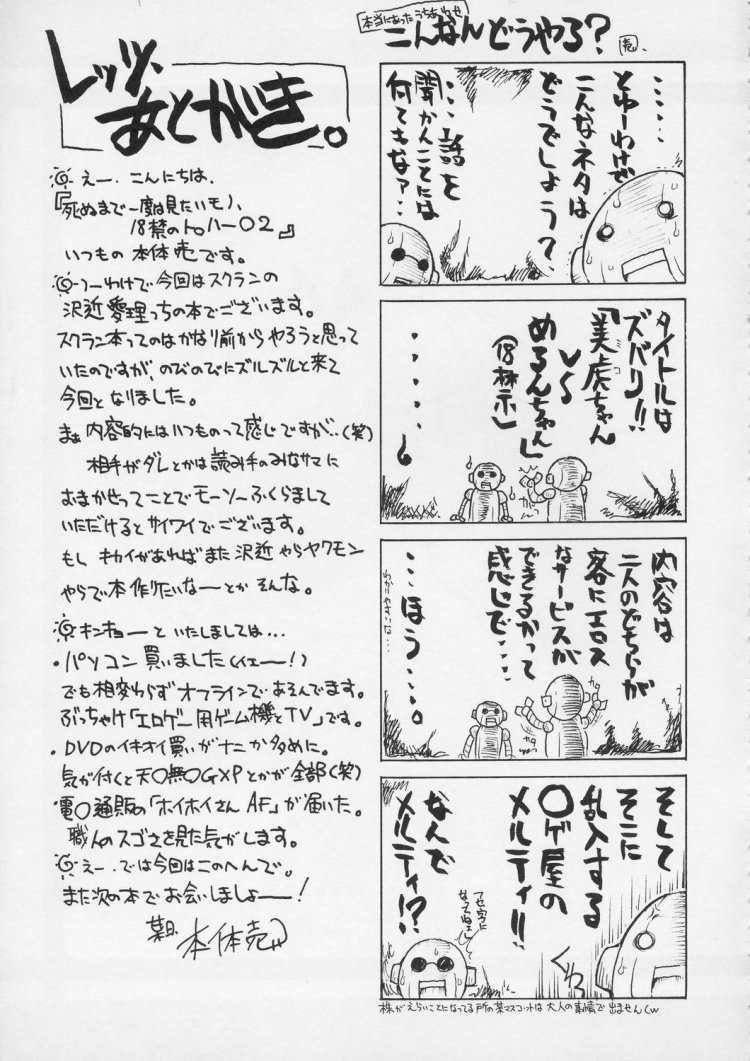 レッツ、
あとがき。
えー、こんにちは、
『死ぬまで一度は見たいモノ、
18禁のトゥハー〇2』
いつもの 本体売です。
つーわけで今回はスクランの
沢近愛理っちの本でございます。
スクラン本ってのはかなり前からやろうと思って
いたのですが、のびのびにズルズルと来て
今回となりました。
まぁ 内容的にはいつものって感じですが…(笑)
相手がダレとかは読み手のみなサマに
おまかせってことでモーソーふくらまして
いただけるとサイワイでございます。
もし キカイがあればまた沢近やらヤクモン
やらで本作りたいなーとか そんな。
キンキョーといたしましては…
・パソコン買いました(イェー!)
でも相変わらずオフラインであそんでます。
ぶっちゃけ「エロゲー用ゲーム機とTV」です。
・DVDのイキオイ買いがナニか多めに。
気が付くと天〇無〇GXPとかが全部(笑)
電〇通販の「ホイホイさんAF」が届いた。
職人のスゴさを見た気がします。
えー、では今回はこのへんで。
また次の本でお会いしましょー!
本体売
本当にあったうちあわせ
こんなんどうやろ?
売.
……
とゆーわけで
こんなネタは
どうでしょう?
…話を
聞かんことには
何てもなァ…
タイトルは
ズバリ!!
『美虎ちゃん
VS
めるんちゃん』
(18禁)
……
内容は
二人のどちらが
客にエロス
なサービスが
できるかって
感じで…
…ほう…。
わかりやすいな…
そして
そこに
乱入する
〇ゲ屋の
メルティ!!
なんで
メルティ!?
フセ字に
なってねェし
ぐわっ
株がえらいことになってる所の某マスコットは大人の事情で出ませんw